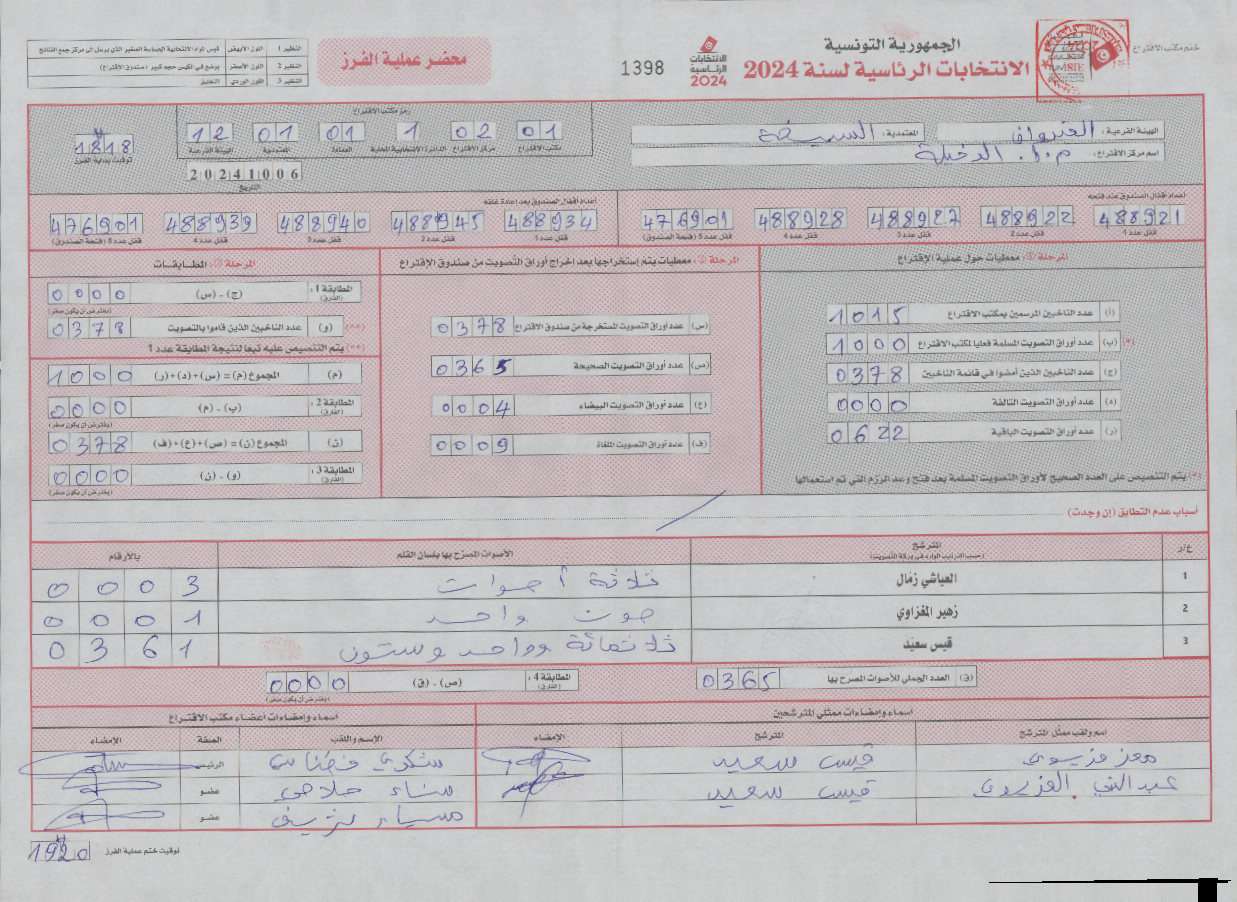 ختم مكتب الاقتراع
الجمهورية التونسية
الانتخابات الرئاسية لسنة 2024
الانتخابات الرئاسية 2024
1398
محضر عملية الفرز
النظير 1 اللون الأبيض
النظير 2 اللون الأصفر يوضع في الكيس حجم كبير (صندوق الاقتراع)
النظير 3 اللون الوردي التعليق
الهيئة الفرعية : القيروان المعتمدية : السبيخة
اسم مركز الاقتراع : م.ا. الدخيلة
رمز مكتب الاقتراع
01 02 1 01 01 12
مكتب الاقتراع مركز الاقتراع الدائرة الانتخابية المحلية العمادة المعتمدية الهيئة الفرعية
20241006
التاريخ
18 H 18
توقيت بداية الفرز
أعداد أقفال الصندوق عند فتحه
488921 488922 488927 488928 476901
قفل عدد 1 قفل عدد 2 قفل عدد 3 قفل عدد 4 قفل عدد 5 (فتحة الصندوق)
أعداد أقفال الصندوق بعد إعادة غلقه
488934 488945 488940 488939 476901
قفل عدد 1 قفل عدد 2 قفل عدد 3 قفل عدد 4 قفل عدد 5 (فتحة الصندوق)
المرحلة ①: معطيات حول عملية الاقتراع
(أ) عدد الناخبين المرسمين بمكتب الاقتراع 1015
(*) (ب) عدد أوراق التصويت المسلمة فعليا لمكتب الاقتراع 1000
(ج) عدد الناخبين الذين أمضوا في قائمة الناخبين 0378
(د) عدد أوراق التصويت التالفة 0000
(ر) عدد أوراق التصويت الباقية 0622
(*) يتم التنصيص على العدد الصحيح لأوراق التصويت المسلمة بعد فتح وعد الرزم التي تم استعمالها
المرحلة ②: معطيات يتم إستخراجها بعد إخراج أوراق التصويت من صندوق الإقتراع
(س) عدد أوراق التصويت المستخرجة من صندوق الاقتراع 0378
(ص) عدد أوراق التصويت الصحيحة 0365
(ع) عدد أوراق التصويت البيضاء 0004
(ف) عدد أوراق التصويت الملغاة 0009
المرحلة ③: المطابقات
المطابقة 1 : (الفارق) (ج) - (س) 0000
(يفترض أن يكون صفر)
(**) (و) عدد الناخبين الذين قاموا بالتصويت 0378
(**) يتم التنصيص عليه تبعا لنتيجة المطابقة عدد 1
(م) المجموع (م) = (س)+(د)+(ر) 1000
المطابقة 2 : (الفارق) (ب) - (م) 0000
(يفترض أن يكون صفر)
(ن) المجموع (ن) = (ص)+(ع)+(ف) 0378
المطابقة 3 : (الفارق) (و) - (ن) 0000
(يفترض أن يكون صفر)
أسباب عدم التطابق (إن وجدت)
ع/ر المترشح الأصوات المصرّح بها بلسان القلم بالأرقام
(حسب الترتيب الوارد في ورقة التصويت)
1 العياشي زمال ثلاثة أصوات 0003
2 زهير المغزاوي صوت واحد 0001
3 قيس سعيّد ثلاثمائة وواحد وستون 0361
(ق) العدد الجملي للأصوات المصرح بها 0365
المطابقة 4 : (الفارق) (ص) - (ق) 0000
(يفترض أن يكون صفر)
أسماء وإمضاءات ممثلي المترشحين
اسم ولقب ممثل المترشح المترشح الإمضاء
معز قيس سعيد
عبد النبي قيس سعيد
أسماء وإمضاءات أعضاء مكتب الاقتراع
الإسم واللقب الصفة الإمضاء
شكري الرئيس
سناء عضو
عضو
توقيت ختم عملية الفرز 19 H 20